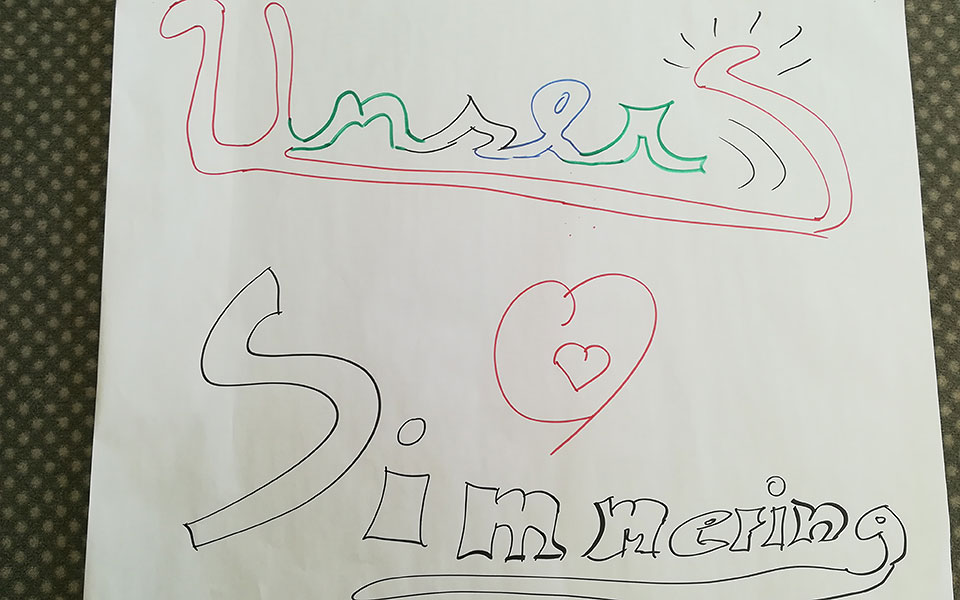 UnserS
Simmering